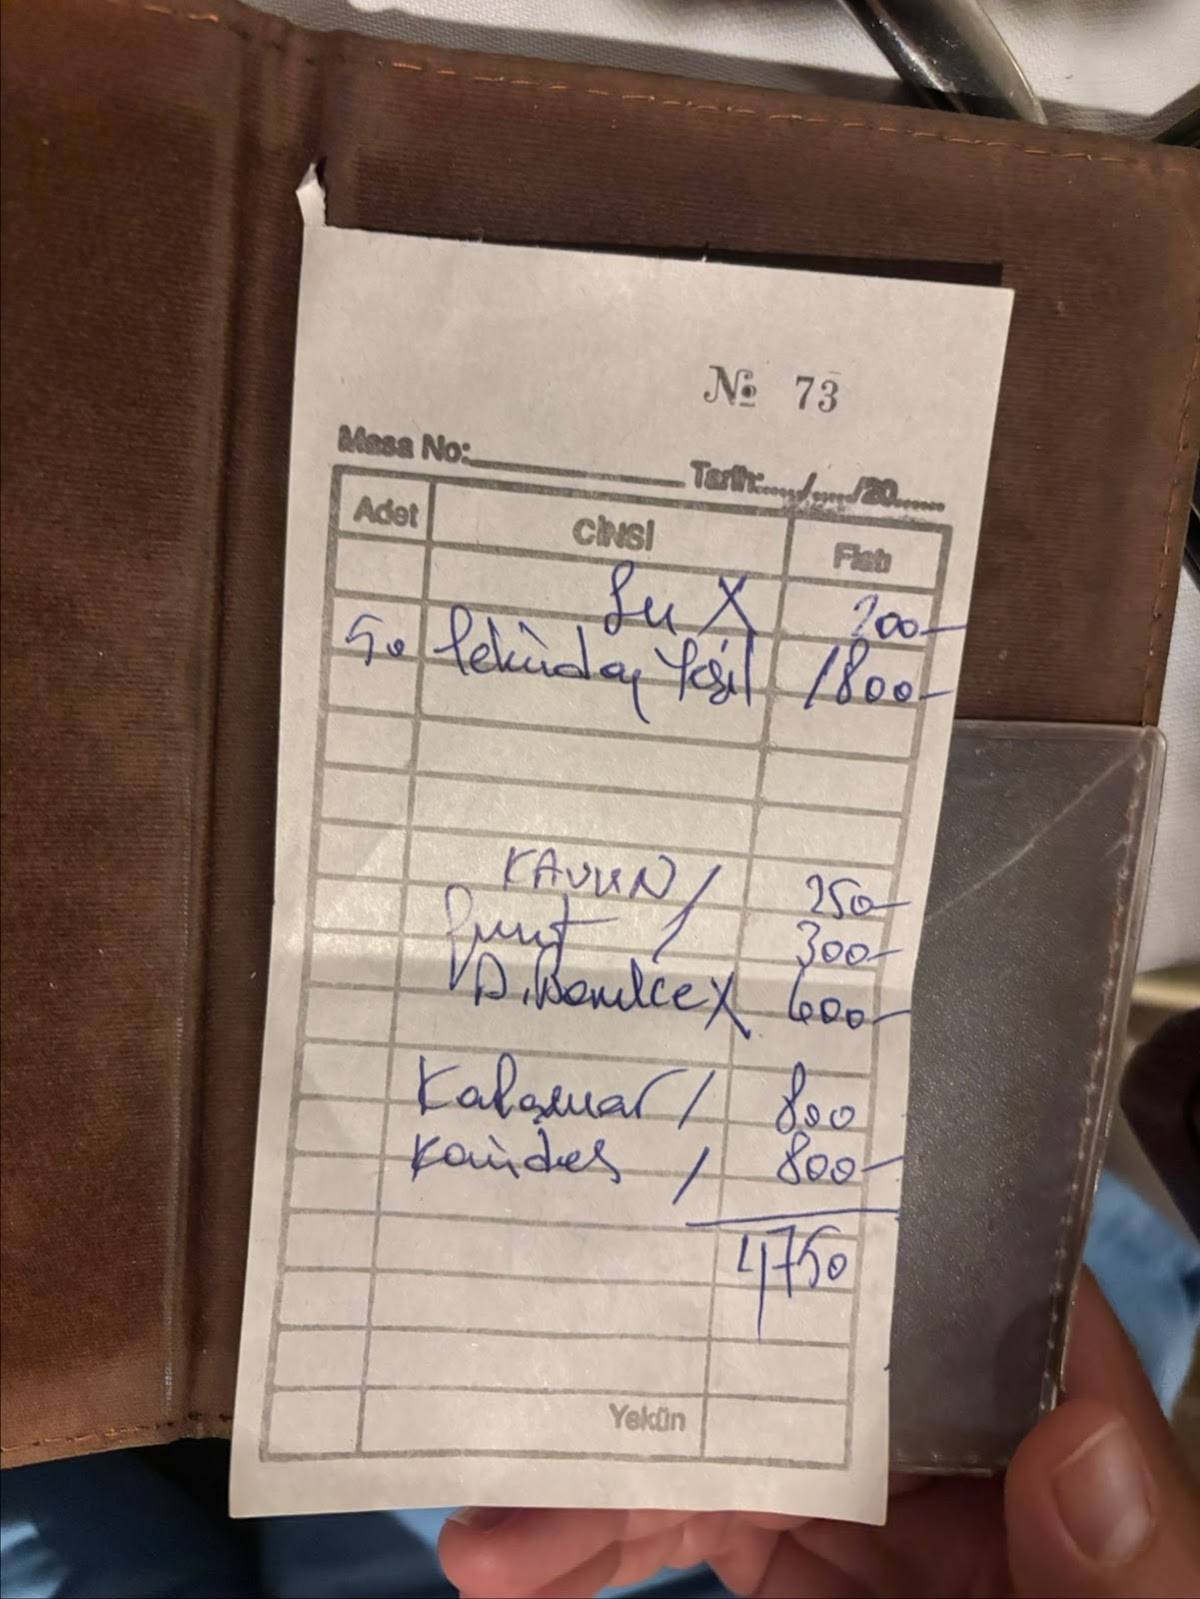 № 73
Masa No: Tarih:...../...../20......
Adet CİNSİ Fiatı
Su X 200-
50 Tekirdağ Yeşil 1800-
KAVUN / 250-
/ 300-
X 600-
Kalamar / 800
Karides / 800-
4750
Yekün